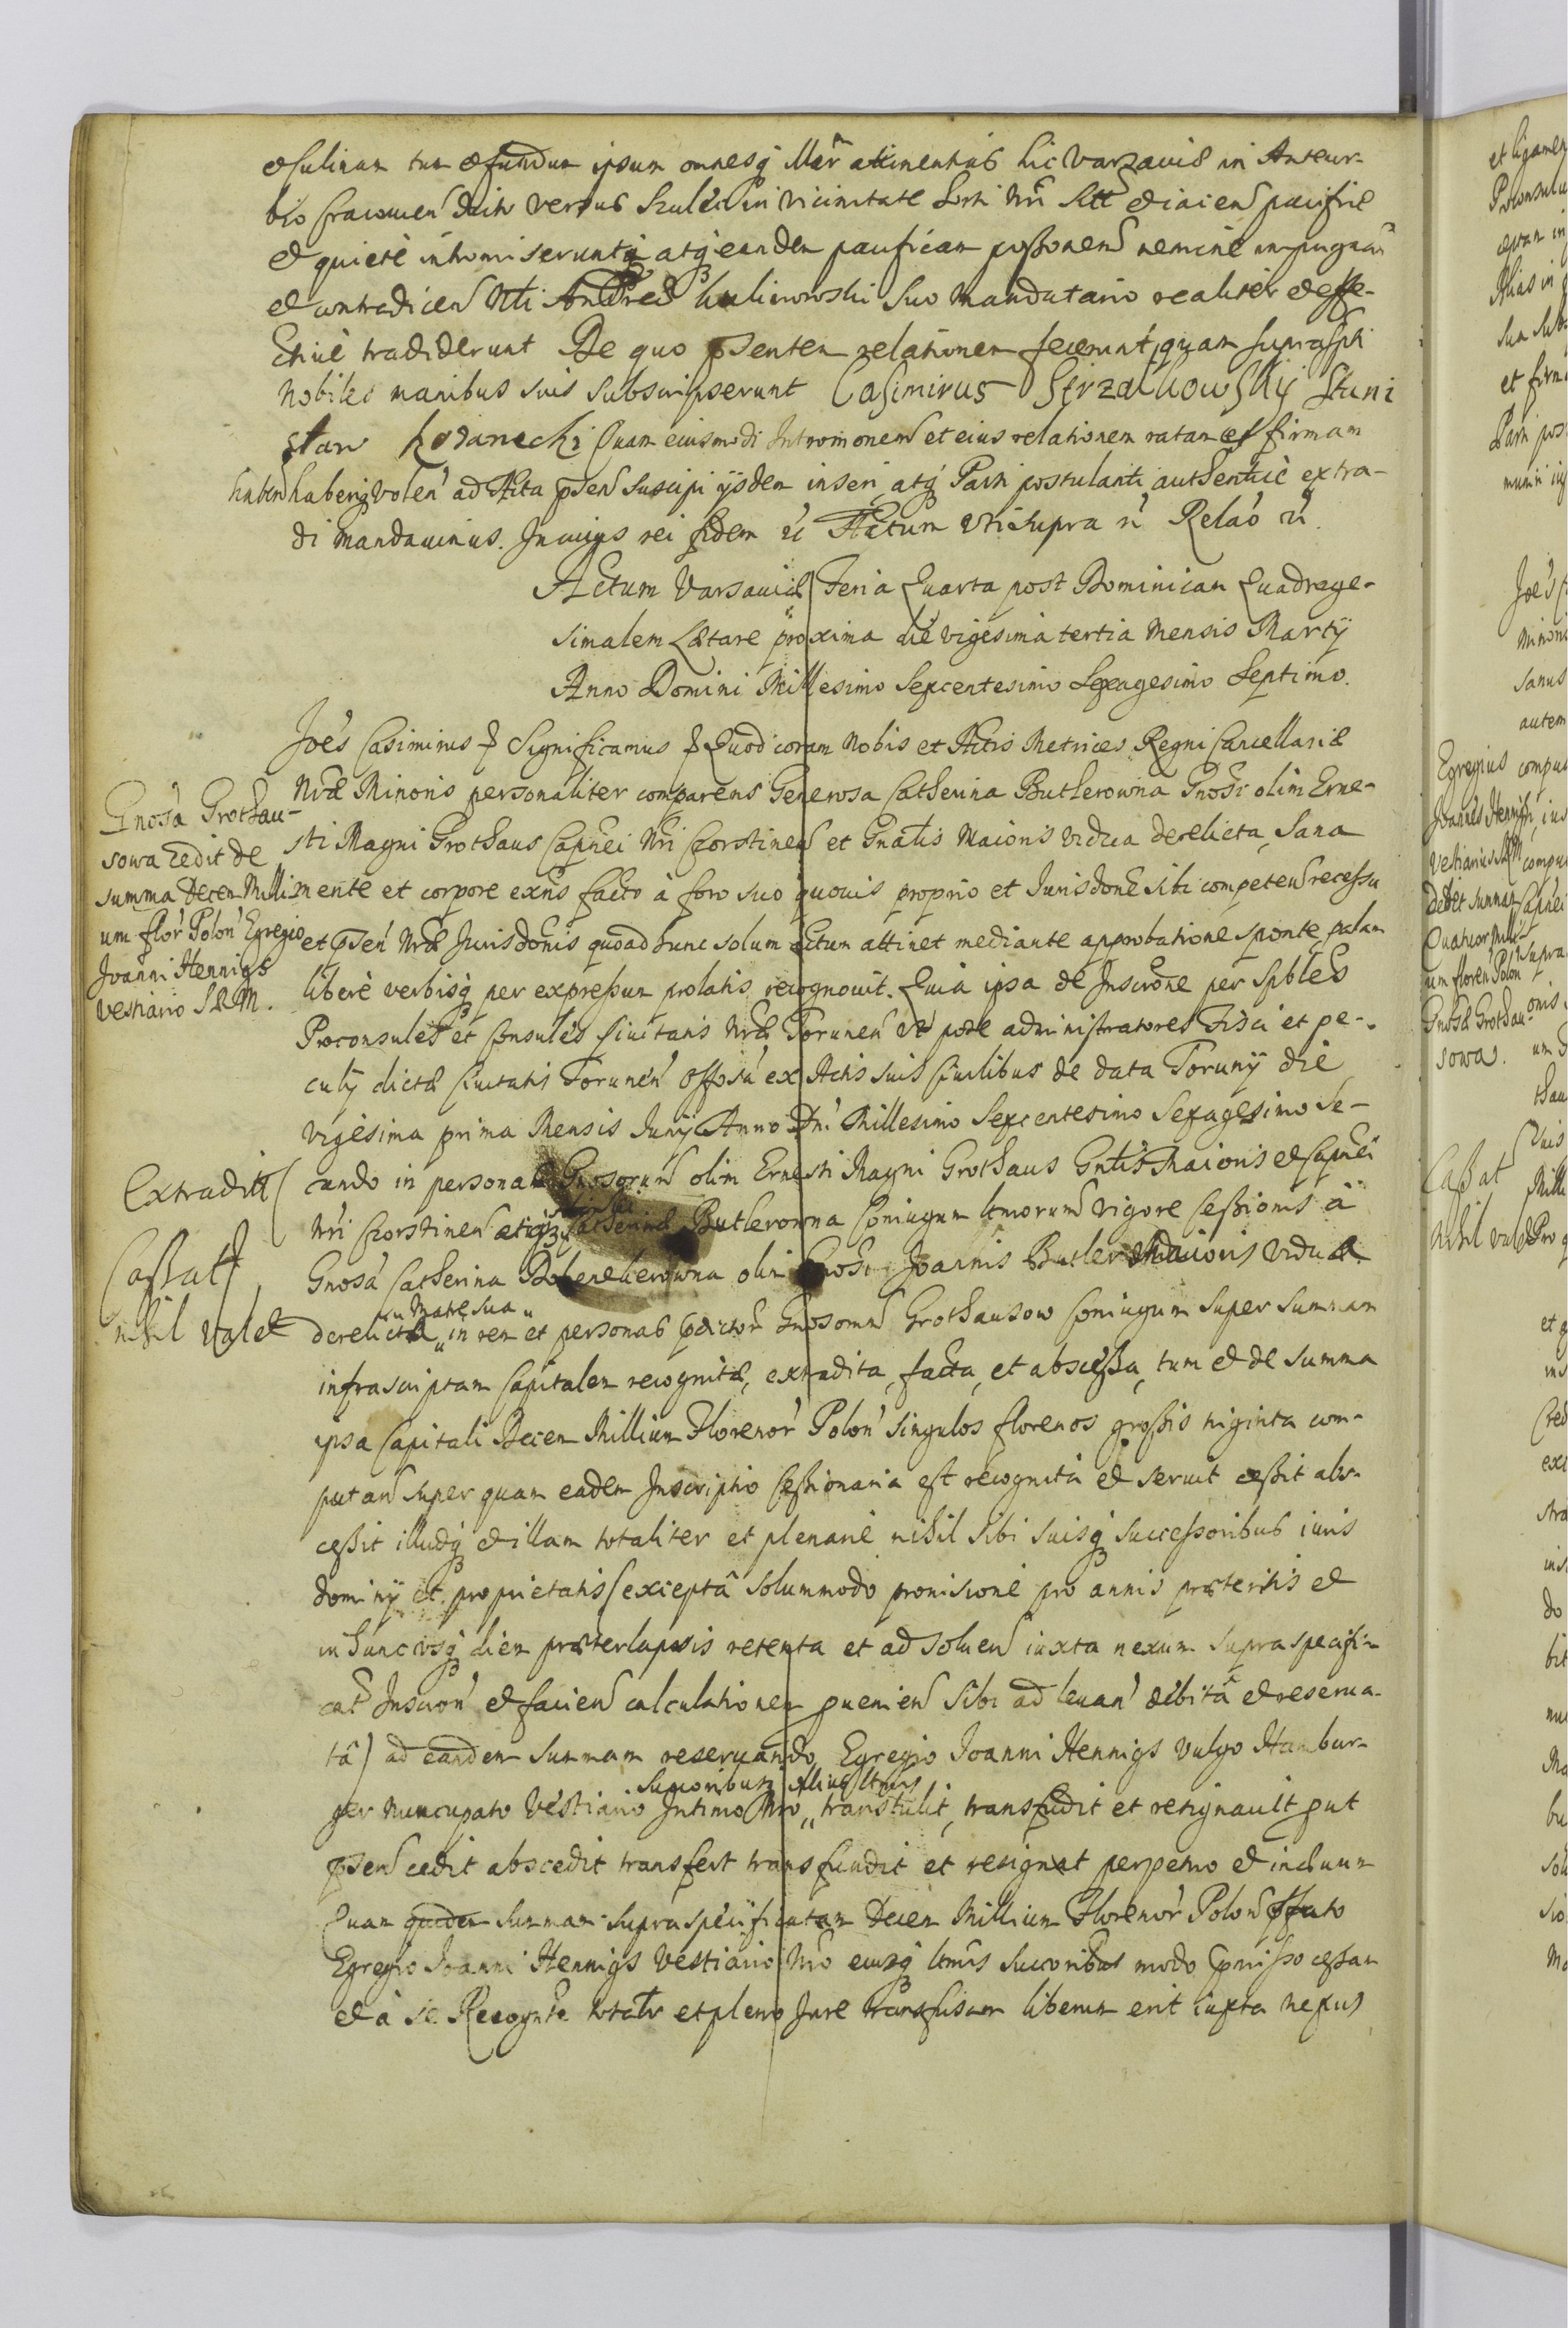 et fundum ipsum omnesq attinentias hic Varsaviæ in Antеur-
bio Cracovien dicto versus in vicinitate horti Nri sitt et iacen pacifice
et quiete intromiserunt atq eandem pacificam possionem nemine impugnan
et contradicen Ntti Andreæ Kulinowski suo mandatario realiter et effe-
ctive tradiderunt De quo psentem relationem fecerunt, quam suprascpti
Nobiles manibus suis subscripserunt Casimirus Strzałkowsky Stani
sław Quam eiusmodi Intromonem et eius relationem ratam et firmam
haben haberiq volen ad Acta psen suscipi ijsdem inseri, atq Parti postulanti authentice extra-
di mandavimus. In cuius rei fidem ec Actum vti supra ec Relao ec
Actum Varsaviæ Feria Quarta post Dominicam Quadrage-
simalem Lætare proxima die vigesima tertia Mensis Martij
Anno Domini Millesimo Sexcentesimo Sexagesimo Septimo.
Joes Casimirus Significamus Quod coram Nobis et Actis Metrices Regni Cancellariæ
Nræ Minoris personaliter comparens Generosa Catherina Butlerowna Gnosi olim Erne-
sti Magni Grothaus Capnei Nri Czorstinen et Gnalis Maioris vidua derelicta, Sana
mente et corpore exns facto à foro suo quovis proprio et Jurisdone sibi competen recessu
et psen Nræ Jurisdonis quoad hunc solum actum attinet mediante approbatione sponte, palam
libere verbisq per expressum prolatis recognouit. Quia ipsa de Inscrone per Spbles
Proconsules et Consules Civitatis Nræ Torunen vt pote administratores Fisci et pe-
culij dictæ Civitatis Torunen ex Actis suis Civilibus de data Torunij die
vigesima prima Mensis Junij Anno Dni Millesimo Sexcentesimo Sexagesimo Se-
cundo in personas Gnosorum olim Ernesti Magni Grothaus Gntis Maioris et Capnei
Nri Czorstinen Catherinæ Butlerowna Coniugum ltmorum vigore Cessionis à
Gnosa Catherina olim Gnosi Joannis Butler Maioris vidua
derelicta Matre sua in rem et personas pdictor Gnosorum Grothausow Coniugum super summam
infrascriptam Capitalem recognita, extradita, facta, et abscessa, tum et de summa
ipsa Capitali Decem Millium Florenor Polon singulos florenos grossis triginta com-
putan super quam eadem Inscriptio Cessionaria est recognita et servit cessit abs-
cessit illudq et illam totaliter et plenarie nihil sibi suisq successoribus iuris
dominij et proprietatis (exceptâ solummodo provisione pro annis præteritis et
in hunc vsq diem præterlapsis retenta et ad solven iuxta nexum supra specifi-
cat Inscron et facien calculationem pvenien sibi ad levan debitâ et reserva-
tâ) ad eandem summam reservando, Egregio Joanni Hennigs vulgo Hambur-
ger nuncupato Vestiario Intimo Nro Sucoribusq illius ltmis transtulit, transfudit et resignavit put
psen cedit abscedit transfert transfundit et resignat perpetuo et in ævum
Quam quidem summam supra specificatam Decem Millium Florenor Polon
Egregio Joanni Hennigs Vestiario Nro eiusq ltmis Sucoribus modo pmisso cessam
et à se Recognte totalr et pleno Jure transfusam liberum erit iuxta nexus
Gnosa Grothau-
sowa cedit de
summa Decem Milli-
um flor Polon Egregio
Joanni Hennigs
Vestiario S R M.
Extradit
Cassat
nihil valet
Egregius
Joannes Hennigs
Vestiarius SRM
debet summam
Quatuor Milli-
um floren Polon
Gnosæ Grothau-
sowa.
Cassat
nihil valet